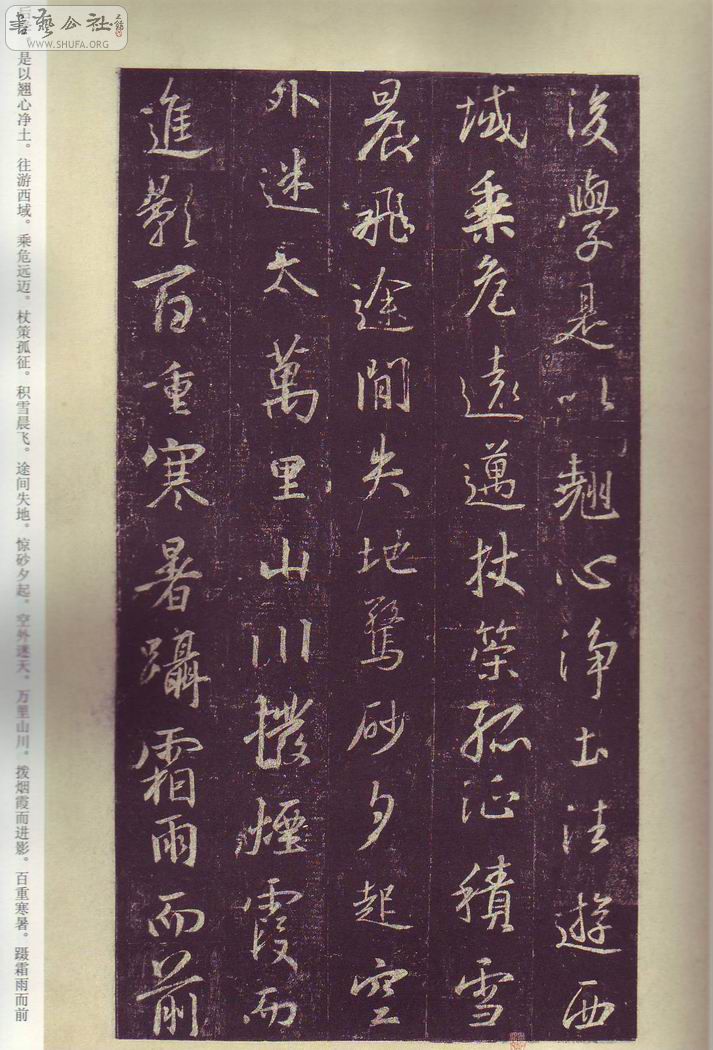 書藝公社
WWW.SHUFA.ORG
後學是以翹心淨土法遊西
域乘危遠邁杖策孤征積雪
晨飛途間失地驚砂夕起空
外迷天萬里山川撥煙霞而
進影百重寒暑躡霜雨而前
是以翘心净土。往游西域。乘危远迈。杖策孤征。积雪晨飞。途间失地。惊砂夕起。空外迷天。万里山川。拨烟霞而进影。百重寒暑。蹑霜雨而前